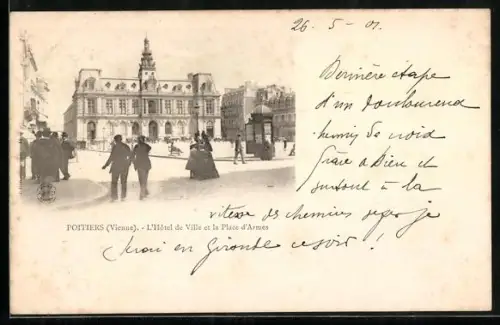 26 - 5 - 01.
Dernière étape
d'un douloureux
chemin de croix
Grâce à Dieu et
surtout à la
vitesse des chemins
je
serai en Gironde ce soir !
POITIERS (Vienne). - L'Hôtel de Ville et la Place d'Armes